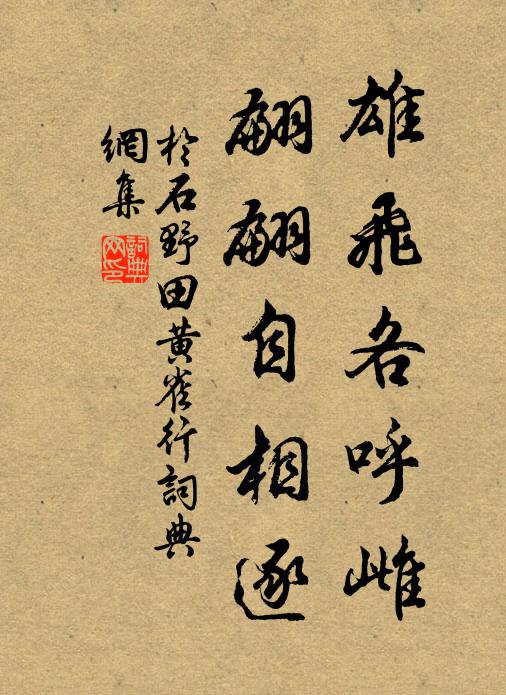 雄飛各呼雌
翩翩自相逐
於石野田黄雀行詞典
網集
詞典
网印